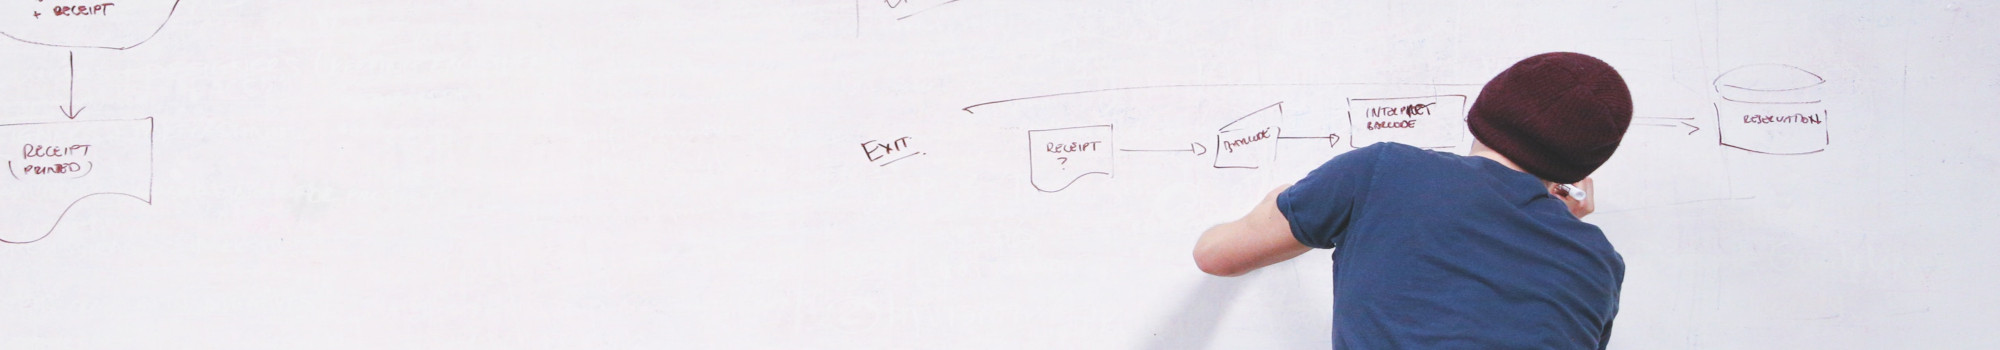 + RECEIPT
RECEIPT
(PRINTED)
EXIT.
RECEIPT
?
BARCODE
INTERPRET
BARCODE
RESERVATION